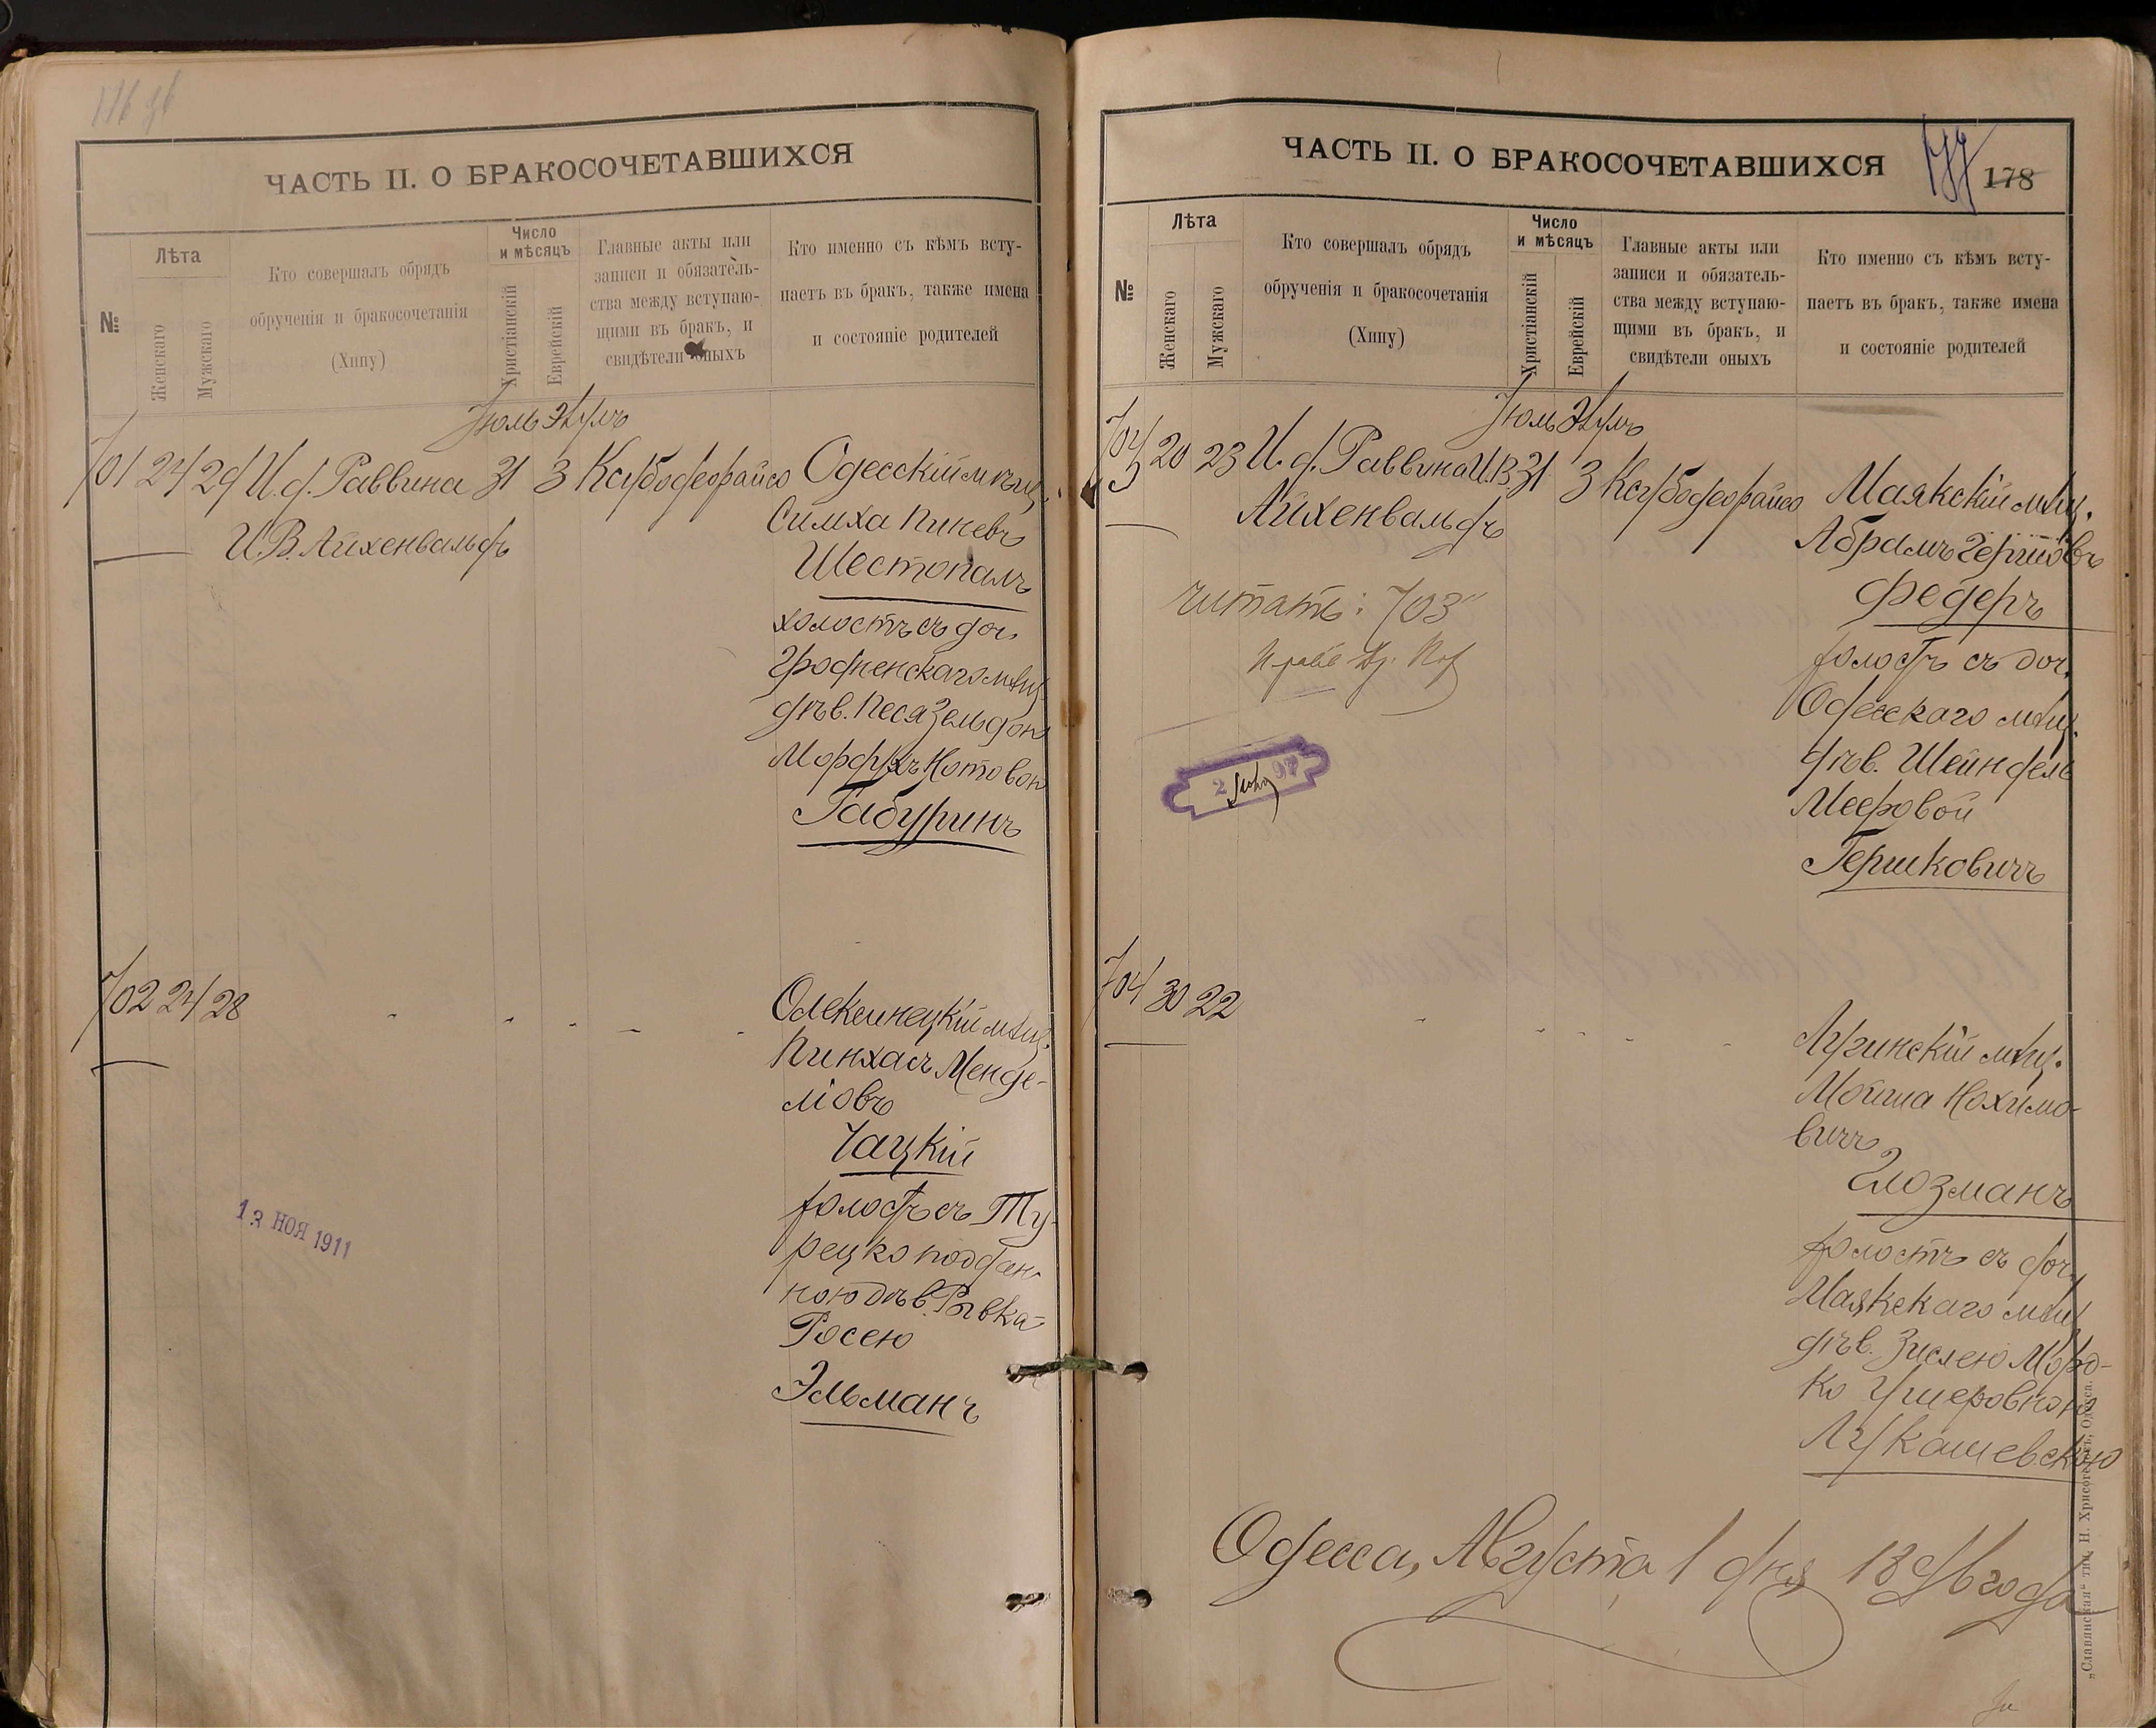 ЧАСТЬ II. О БРАКОСОЧЕТАВШИХСЯ
№
Лѣта
Женскаго
Мужскаго
Кто совершалъ обрядъ
обрученія и бракосочетанія
(Хипу)
Число
и мѣсяцъ
Христіанскій
Еврейскій
Главные акты или
записи и обязатель-
ства между вступаю-
щими въ бракъ, и
свидѣтели оныхъ
Кто именно съ кѣмъ всту-
паетъ въ бракъ, также имена
и состояніе родителей
Іюль Элулъ
701 24 29 И.д. Раввина 31 3 Одесскій мѣщ.
И.В. Айхенвальдъ
Симха Пиневъ
Шестопалъ
холостъ съ доч.
Гродненскаго мѣщ.
дѣв. Песя Зельдою
Мордухъ Нотовою
Габуринъ
702 24 28
Олексинецкій мѣщ.
Пинхасъ Менде-
ліовъ
Чацкій
холостъ съ Ту-
рецко поддан-
ною дѣв. Рывка-
Росею
Эльманъ
13 НОЯ 1911
ЧАСТЬ II. О БРАКОСОЧЕТАВШИХСЯ
178
№
Лѣта
Женскаго
Мужскаго
Кто совершалъ обрядъ
обрученія и бракосочетанія
(Хипу)
Число
и мѣсяцъ
Христіанскій
Еврейскій
Главные акты или
записи и обязатель-
ства между вступаю-
щими въ бракъ, и
свидѣтели оныхъ
Кто именно съ кѣмъ всту-
паетъ въ бракъ, также имена
и состояніе родителей
Іюль Элулъ
703 20 23 И.д. Раввина И.В. 31 3 Маякскій мѣщ.
Айхенвальдъ
Абрамъ Гершовъ
Федеръ
холостъ съ доч.
Одесскаго мѣщ.
дѣв. Шейндель
Мееровой
Гершковичъ
читать: "703"
2 97
704 30 22
Лугинскій мѣщ.
Мойша Нохимо-
вичъ
Глозманъ
холостъ съ доч.
Маякскаго мѣщ.
дѣв. Зислею Морд-
ко Ушеровною
Лукашевскою
Одесса, Августа 1 дня 1896 года
„Славянская“ тип. Н. Хрисогелосъ, Одесса.